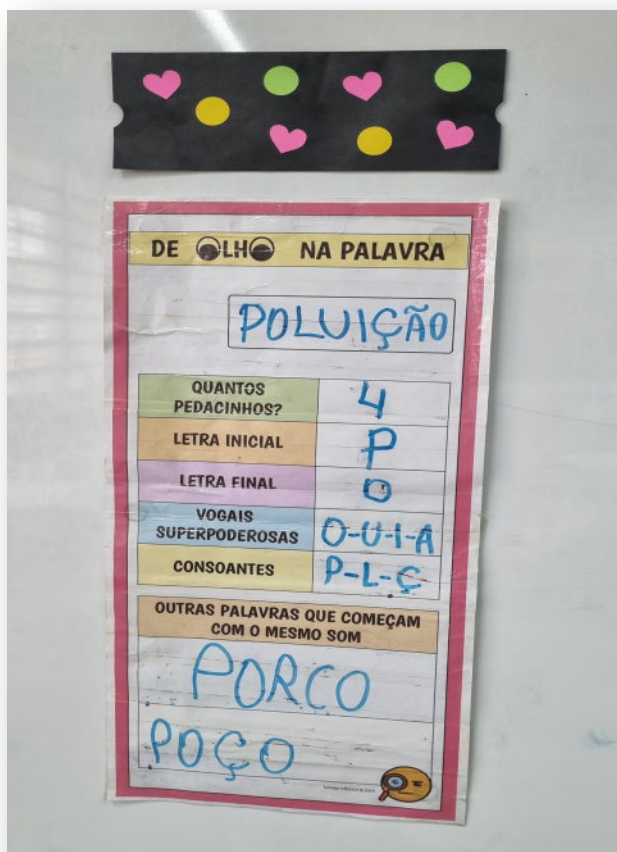 DE OLHO NA PALAVRA
POLUIÇÃO
QUANTOS
PEDACINHOS?
4
LETRA INICIAL
P
LETRA FINAL
O
VOGAIS
SUPERPODEROSAS
O-U-I-A
CONSOANTES
P-L-Ç
OUTRAS PALAVRAS QUE COMEÇAM
COM O MESMO SOM
PORCO
POÇO